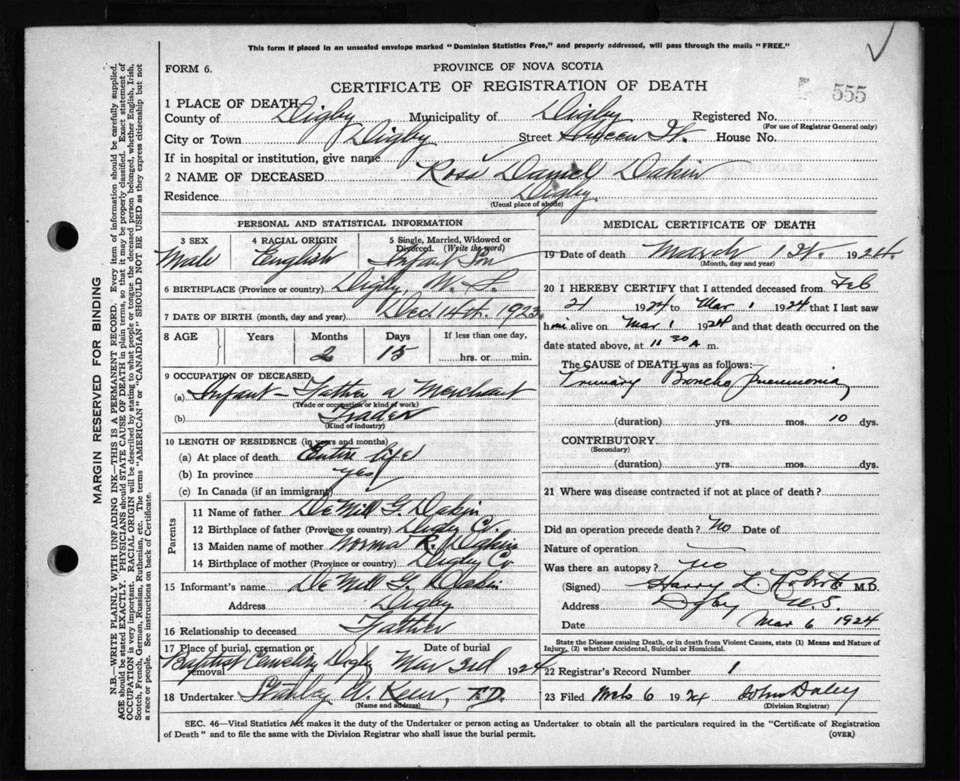 This form if placed in an unsealed envelope marked "Dominion Statistics Free," and properly addressed, will pass through the mails "FREE."
FORM 6.
PROVINCE OF NOVA SCOTIA
CERTIFICATE OF REGISTRATION OF DEATH
555
1 PLACE OF DEATH
County of Digby Municipality of Digby Registered No.
(For use of Registrar General only)
City or Town Digby Street Queen St. House No.
If in hospital or institution, give name
2 NAME OF DECEASED Ross Daniel Dakin
Residence Digby
(Usual place of abode)
PERSONAL AND STATISTICAL INFORMATION
3 SEX
Male
4 RACIAL ORIGIN
English
5 Single, Married, Widowed or Divorced. (Write the word)
Infant Son
6 BIRTHPLACE (Province or country) Digby, N.S.
7 DATE OF BIRTH (month, day and year) Dec 14th. 1923
8 AGE Years Months Days If less than one day,
2 15 hrs. or min.
9 OCCUPATION OF DECEASED
(a) Infant - Father a Merchant
(Trade or occupation or kind of work)
(b) Trader
(Kind of industry)
10 LENGTH OF RESIDENCE (in years and months)
(a) At place of death Entire life
(b) In province yes
(c) In Canada (if an immigrant)
Parents
11 Name of father DeMill G. Dakin
12 Birthplace of father (Province or country) Digby Co.
13 Maiden name of mother Norma R. Dakin
14 Birthplace of mother (Province or country) Digby Co
15 Informant's name DeMill G. Dakin
Address Digby
16 Relationship to deceased Father
17 Place of burial, cremation or removal Date of burial
Baptist Cemetery Digby Mar 3rd 1924
18 Undertaker W.
(Name and address)
MEDICAL CERTIFICATE OF DEATH
19 Date of death March 1st. 1924.
(Month, day and year)
20 I HEREBY CERTIFY that I attended deceased from Feb
21 1924 to Mar 1 1924 that I last saw
him alive on Mar 1 1924 and that death occurred on
date stated above, at 11 30 A m.
The CAUSE of DEATH was as follows:
Primary Broncho Pneumonia
(duration) yrs. mos. 10 dys.
CONTRIBUTORY.
(Secondary)
(duration) yrs. mos. dys.
21 Where was disease contracted if not at place of death?
Did an operation precede death? No Date of
Nature of operation
Was there an autopsy? no
(Signed) Harry L. M.D.
Address Digby N.S.
Date Mar 6 1924
State the Disease causing Death, or in death from Violent Causes, state (1) Means and Nature of
Injury, (2) whether Accidental, Suicidal or Homicidal.
22 Registrar's Record Number 1
23 Filed Mch 6 1924 John Daley
(Division Registrar)
SEC. 46—Vital Statistics Act makes it the duty of the Undertaker or person acting as Undertaker to obtain all the particulars required in the "Certificate of Registration
of Death" and to file the same with the Division Registrar who shall issue the burial permit.
(OVER)
MARGIN RESERVED FOR BINDING
N.B—WRITE PLAINLY WITH UNFADING INK—THIS IS A PERMANENT RECORD. Every item of information should be carefully supplied.
AGE should be stated EXACTLY. PHYSICIANS should STATE CAUSE OF DEATH in plain terms, so that it may be properly classified. Exact statement of
OCCUPATION is very important. RACIAL ORIGIN will be described by stating to what people or tongue the deceased person belonged, whether English, Irish,
Scotch, French, German, Russian, Ruthenian, etc. The terms "AMERICAN" or "CANADIAN" SHOULD NOT BE USED as they express citizenship but not
a race or people. See instructions on back of Certificate.